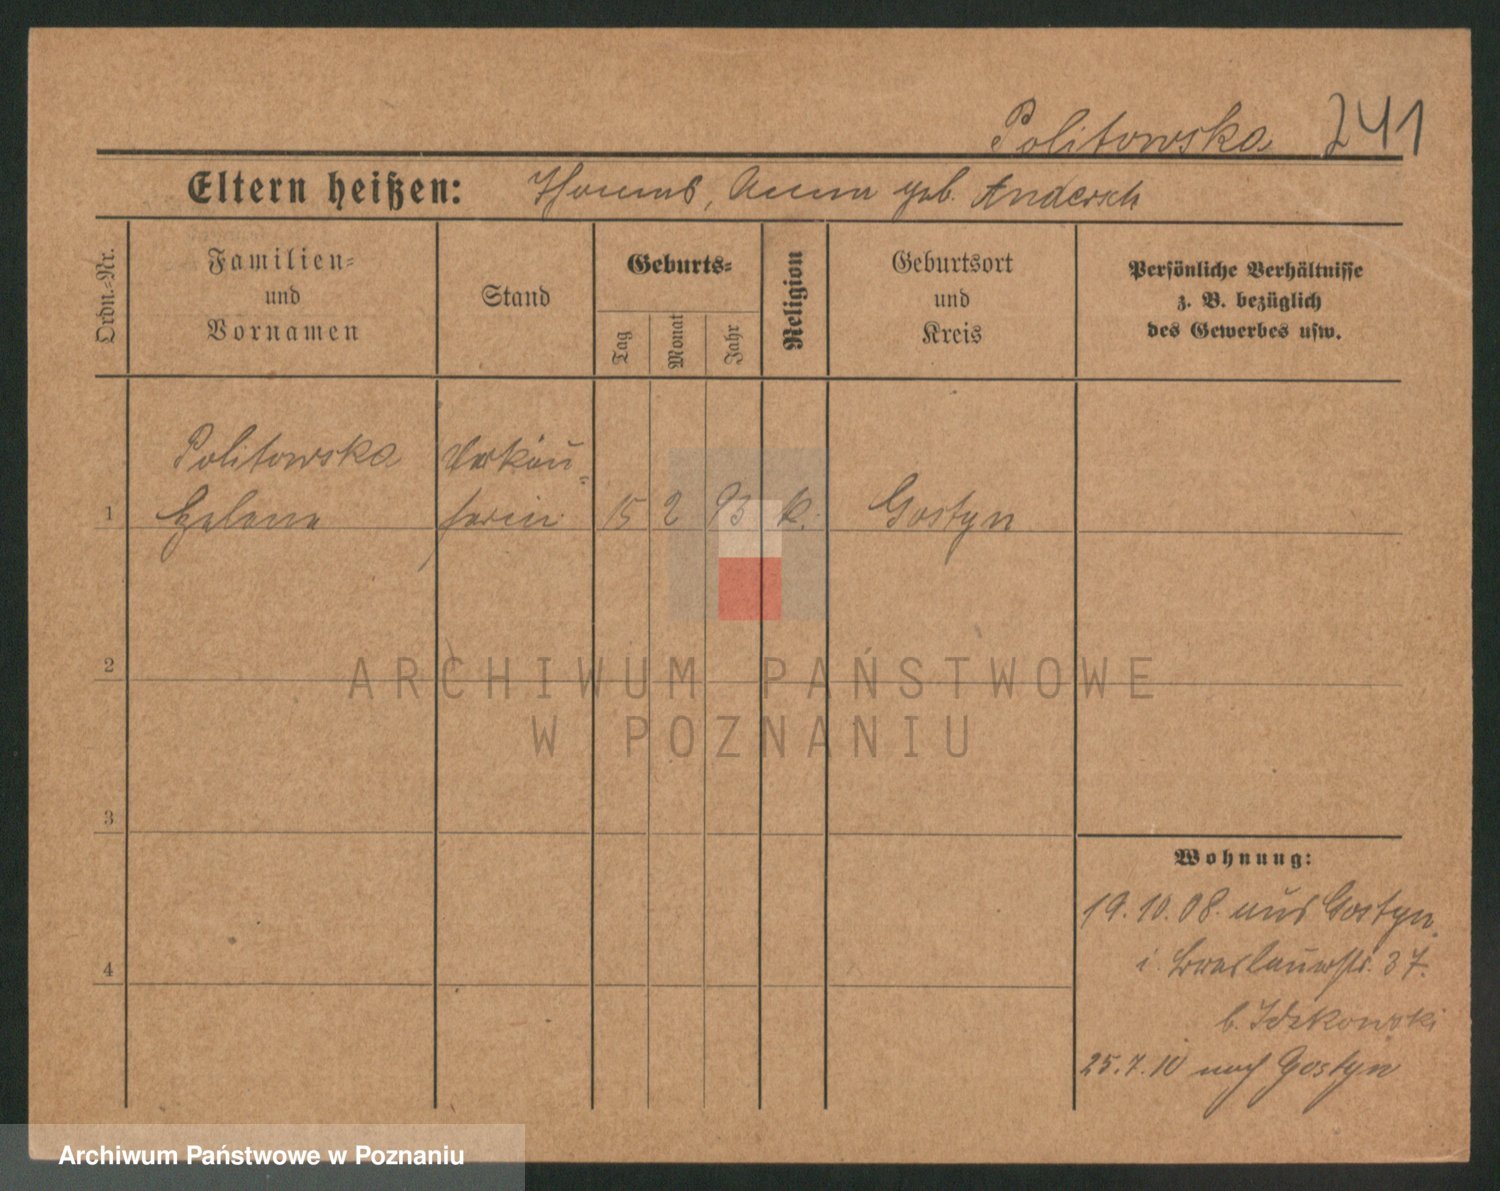 Politowska 241
Eltern heißen: Thomas, Anna geb. Andersch
Ordn.-Nr.
Familien-
und
Vornamen
Stand
Geburts-
Tag
Monat
Jahr
Religion
Geburtsort
und
Kreis
Persönliche Verhältnisse
z. B. bezüglich
des Gewerbes usw.
Politowska Verkäu-
1 Helene ferin 15 2 93 k. Gostyn
2
3
4
Wohnung:
19.10.08. aus Gostyn.
i. Breslauerstr. 37.
b.
25.7.10 nach Gostyn
ARCHIWUM PAŃSTWOWE
W POZNANIU
Archiwum Państwowe w Poznaniu